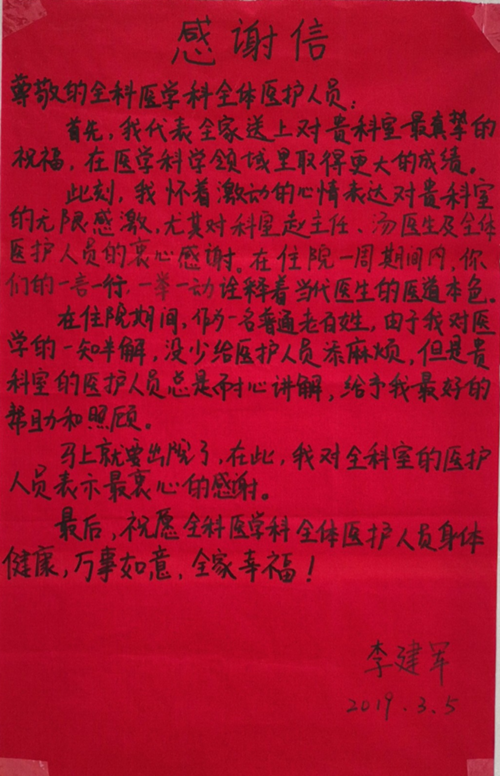 感谢信
尊敬的全科医学科全体医护人员：
首先，我代表全家送上对贵科室最真挚的
祝福，在医学科学领域里取得更大的成绩。
此刻，我怀着激动的心情表达对贵科室
的无限感激，尤其对科室赵主任、汤医生及全体
医护人员的衷心感谢。在住院一周期间内，你
们的一言一行，一举一动诠释着当代医生的医道本色。
在住院期间，作为一名普通老百姓，由于我对医
学的一知半解，没少给医护人员添麻烦，但是贵
科室的医护人员总是耐心讲解，给予我最好的
帮助和照顾。
马上就要出院了，在此，我对全科室的医护
人员表示最衷心的感谢。
最后，祝愿全科医学科全体医护人员身体
健康，万事如意，全家幸福！
李建军
2019.3.5